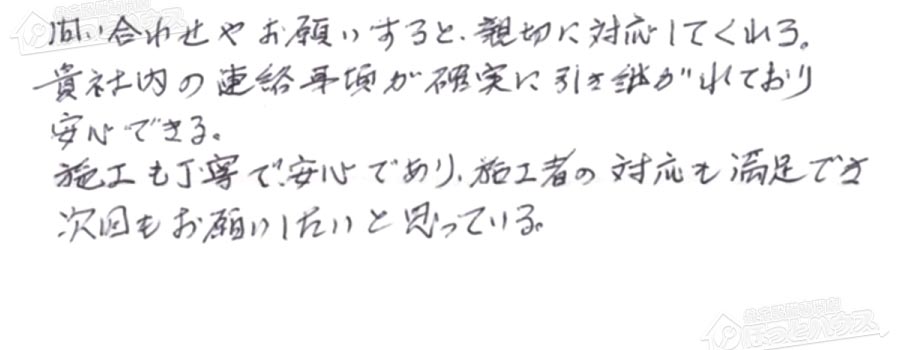 問い合わせやお願いすると、親切に対応してくれる。
貴社内の連絡事項が確実に引き継がれており
安心できる。
施工も丁寧で、安心であり、施工者の対応も満足でき
次回もお願いしたいと思っている。
ほっとハウス
ほっとハウス